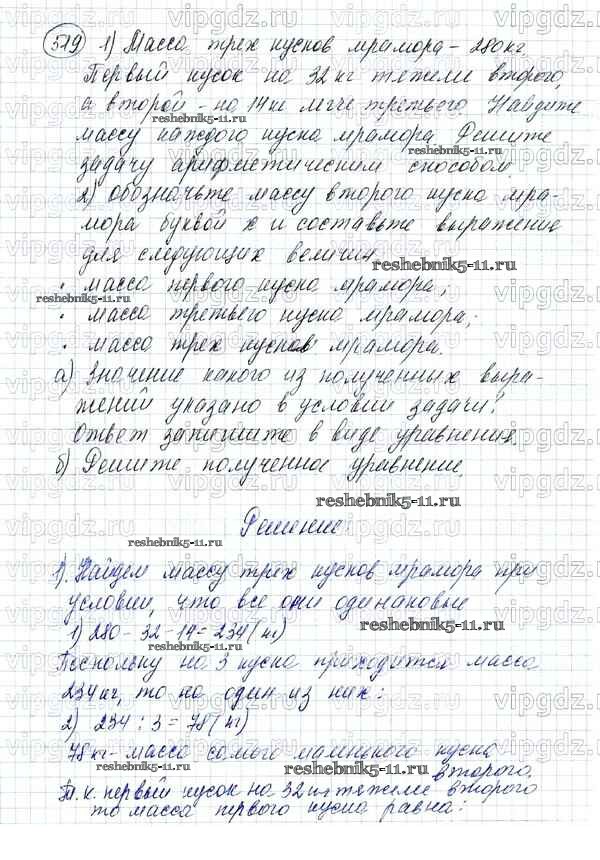 519 1) Масса трех кусков мрамора – 280 кг.
Первый кусок на 32 кг тяжелее второго,
а второй – на 14 кг легче третьего. Найдите
массу каждого куска мрамора. Решите
задачу арифметическим способом.
2) Обозначьте массу второго куска мра-
мора буквой x и составьте выражение
для следующих величин
· масса первого куска мрамора;
· масса третьего куска мрамора;
· масса трех кусков мрамора.
а) Значение какого из полученных выра-
жений указано в условии задачи?
Ответ запишите в виде уравнения.
б) Решите полученное уравнение.
Решение
1). Найдем массу трех кусков мрамора при
условии, что все они одинаковые
1) 280 - 32 - 14 = 234 (кг)
Поскольку на 3 куска приходится масса
234 кг, то на один из них:
2) 234 : 3 = 78 (кг)
78 кг – масса самого маленького куска
второго.
Т. к. первый кусок на 32 кг тяжелее второго
то масса первого куска равна:
vipgdz.ru
reshebnik5-11.ru